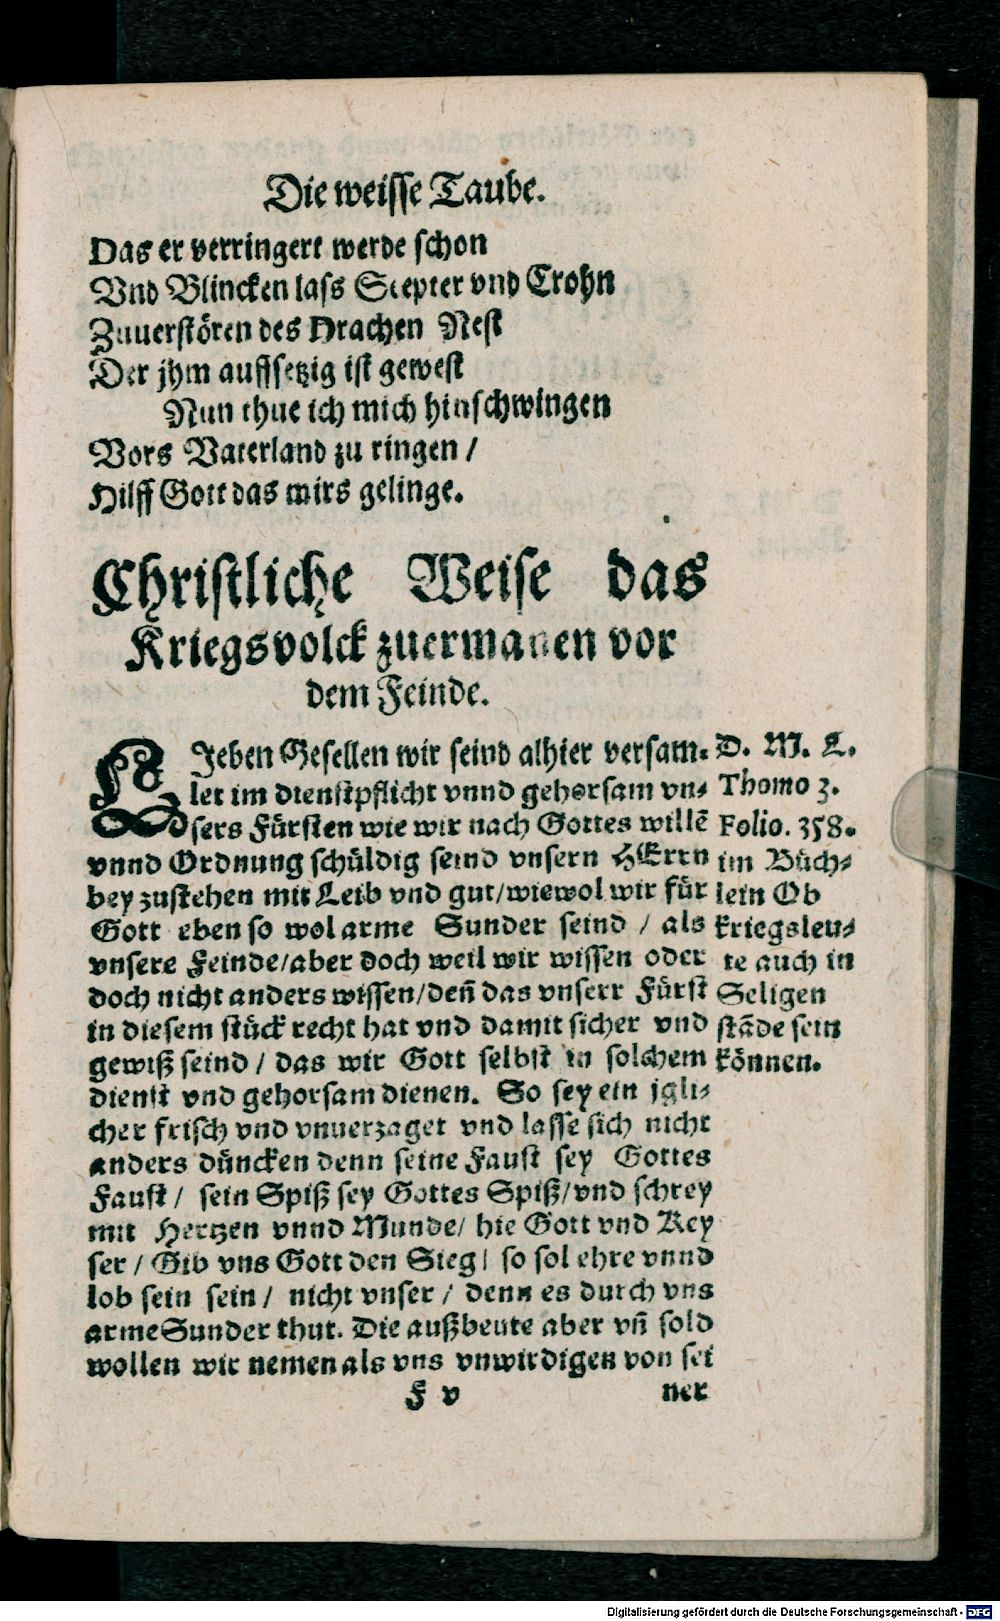 Die weisse Taube.
Das er verringert werde schon
Vnd Blincken lass Scepter vnd Crohn
Zuuerstören des Drachen Nest
Der jhm auffsetzig ist gewest
Nun thue ich mich hinschwingen
Vors Vaterland zu ringen /
Hilff Gott das wirs gelinge.
Christliche Weise das
Kriegsvolck zuermanen vor
dem Feinde.
LIeben Gesellen wir seind alhier versam-
let im dienstpflicht vnnd gehorsam vn-
sers Fürsten wie wir nach Gottes willē
vnnd Ordnung schüldig seind vnsern HErrn
bey zustehen mit Leib vnd gut/wiewol wir für
Gott eben so wol arme Sunder seind / als
vnsere Feinde/aber doch weil wir wissen oder
doch nicht anders wissen/deñ das vnserr Fürst
in diesem stück recht hat vnd damit sicher vnd
gewiß seind / das wir Gott selbst in solchem
dienst vnd gehorsam dienen. So sey ein jgli-
cher frisch vnd vnuerzaget vnd lasse sich nicht
anders düncken denn seine Faust sey Gottes
Faust / sein Spiß sey Gottes Spiß/vnd schrey
mit Hertzen vnnd Munde/ hie Gott vnd Key
ser / Gib vns Gott den Sieg/ so sol ehre vnnd
lob sein sein / nicht vnser / denn es durch vns
arme Sunder thut. Die außbeute aber vñ sold
wollen wir nemen als vns vnwirdigen von sei
F v
ner
D. M. L.
Thomo 3.
Folio. 358.
im Büch-
lein Ob
kriegsleu-
te auch in
Seligen
stāde sein
können.
Digitalisierung gefördert durch die Deutsche Forschungsgemeinschaft - DFG